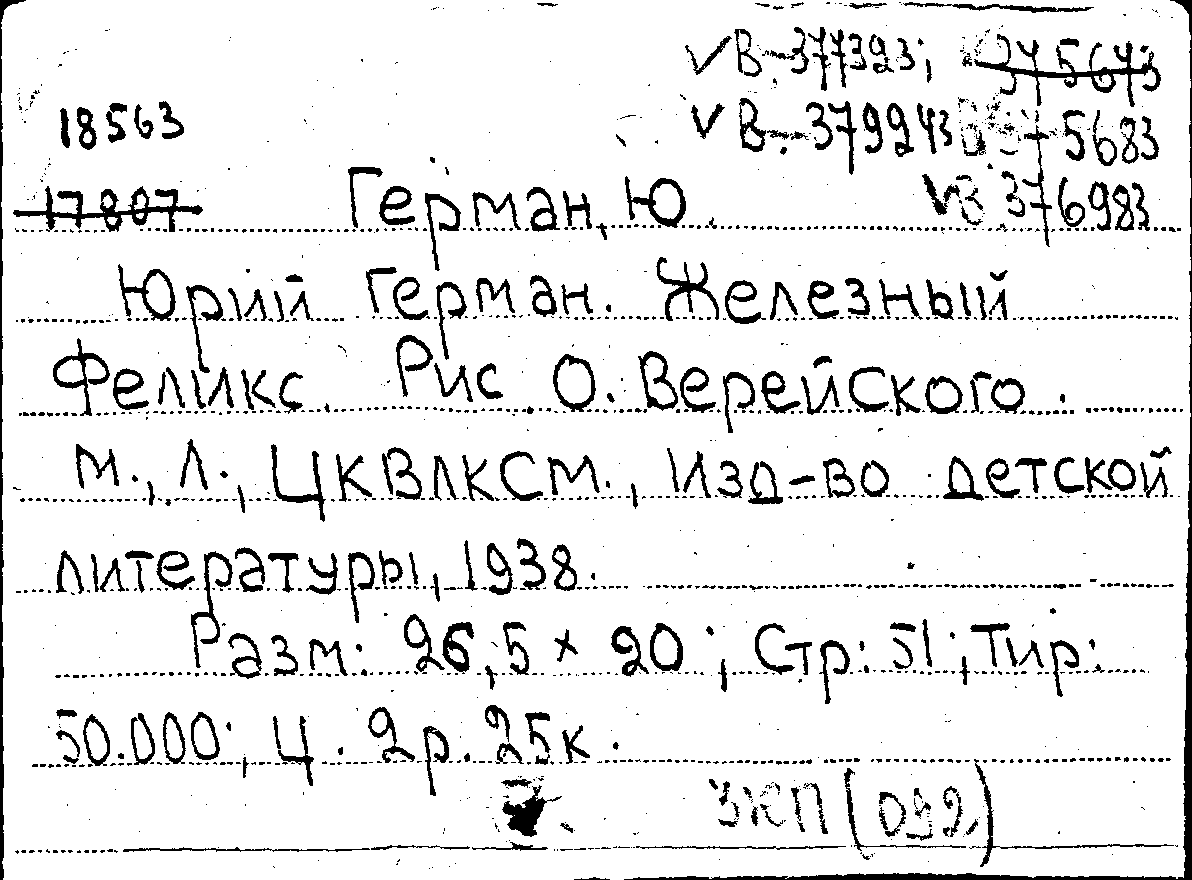 ✓ В. 377323; 375673
18563 ✓ В. 379943 5683
17807 Герман, Ю. ✓В 376983
Юрий Герман. Железный
Феликс. Рис О. Верейского.
М., Л., ЦКВЛКСМ., Изд-во детской
литературы, 1938.
Разм: 26,5 × 20; Стр: 51; Тир:
50.000; Ц. 2р. 25к.
ЗКП (092)